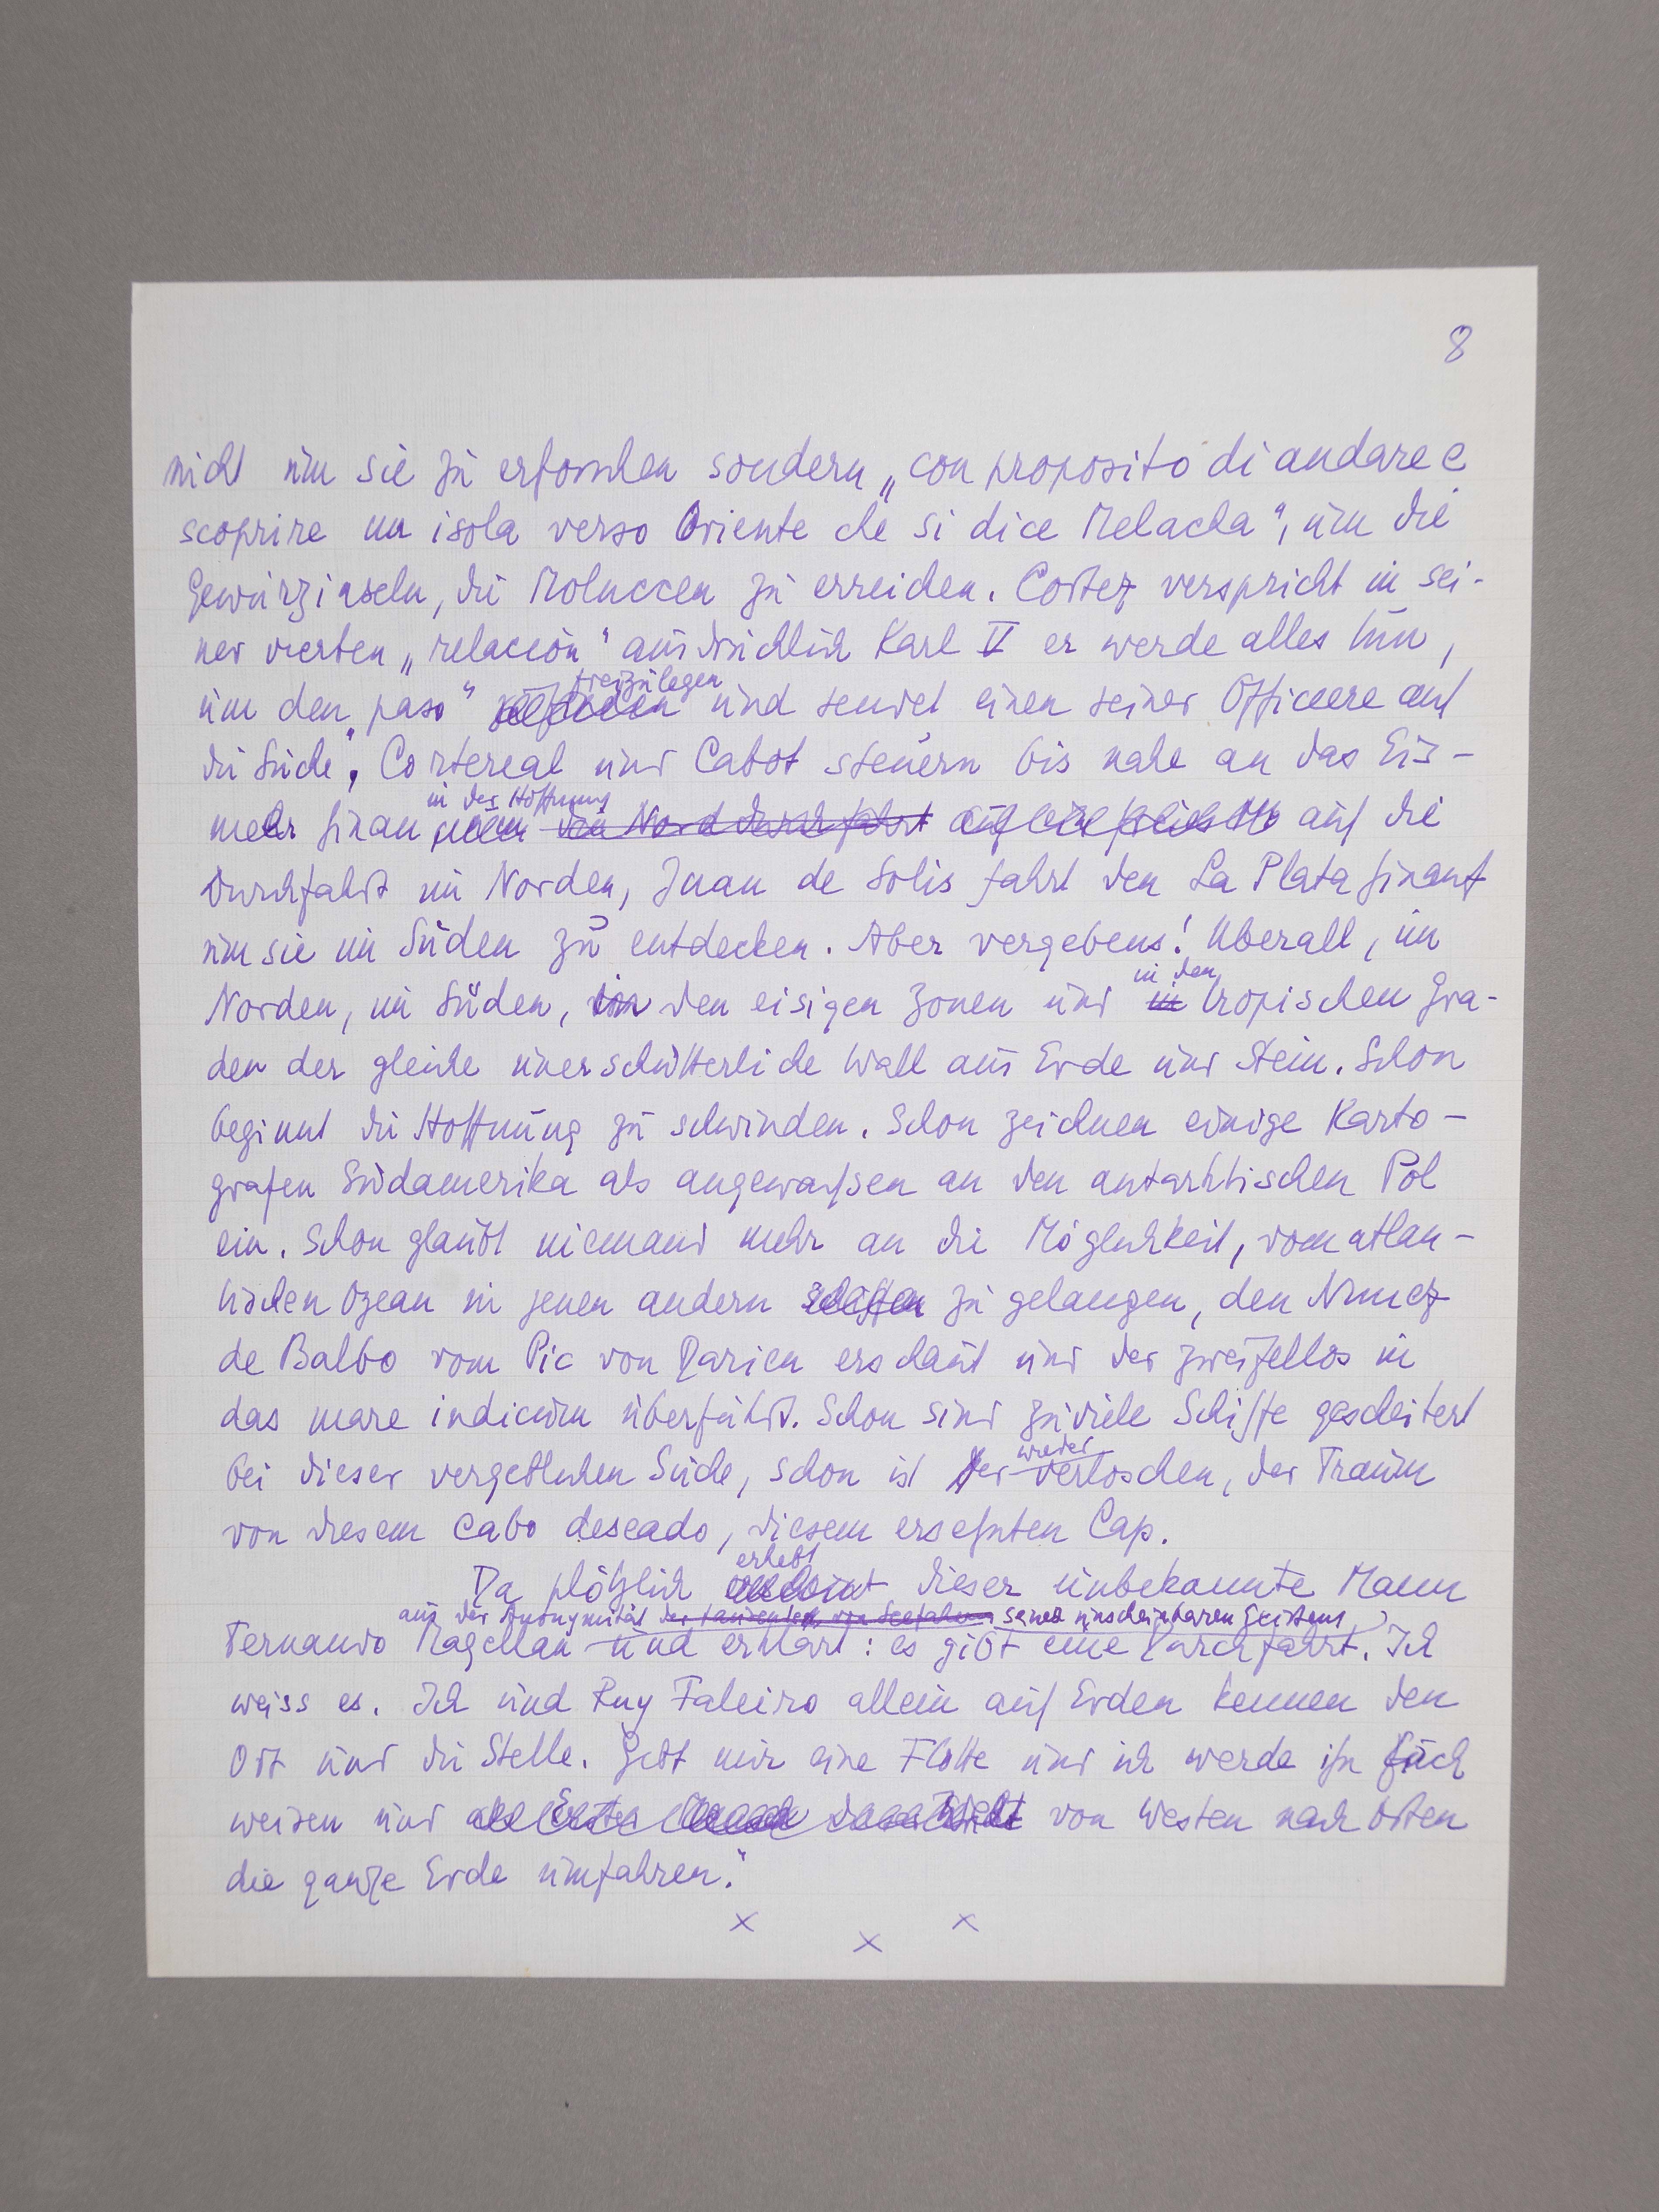 8
nicht um sie zu erforschen sondern „con proposito di andare e
scoprire un isola verso Oriente che si dice Melacha“, um die
Gewürzinseln, die Moluccen zu erreichen. Cortez verspricht in sei-
ner vierten „relacion“ ausdrücklich Karl V er werde alles tun,
freizulegen
um den „paso“ und sendet einen seiner Officiere auf
die Suche, Cortereal und Cabot steuern bis nahe an das Eis-
in der Hoffnung
meer hinan die Nord durchfahrt auf die
Durchfahrt im Norden, Juan de Solis fahrt den La Plata hinauf
um sie im Süden zu entdecken. Aber vergebens! Uberall, im
in den
Norden, im Süden, in den eisigen Zonen und in tropischen Gra-
den der gleiche unerschütterliche Wall aus Erde und Stein. Schon
beginnt die Hoffnung zu schwinden. Schon zeichnen einige Karto-
grafen Südamerika als angewachsen an den antarktischen Pol
ein. Schon glaubt niemand mehr an die Möglichkeit, vom atlan-
tischen Ozean in jenen andern zu gelangen, den Nunez
de Balbo vom Pic von Darien erschaut und der zweifellos in
das mare indicum überführt. Schon sind zuviele Schiffe gescheitert
wieder
bei dieser vergeblichen Suche, schon ist er verloschen, der Traum
von diesem cabo deseado, diesem ersehnten Cap.
erhebt
Da plötzlich dieser unbekannte Mann
aus der Anonymität der tausenden von Seefahrern seines unscheinbaren Existens
Fernando Magellan und erklärt: es gibt eine Durchfahrt. Ich
weiss es. Ich und Ruy Faleiro allein auf Erden kennen den
Ort und die Stelle. Gebt mir eine Flotte und ich werde ihn Euch
weisen und von Westen nach Osten
die ganze Erde umfahren.“
x x x